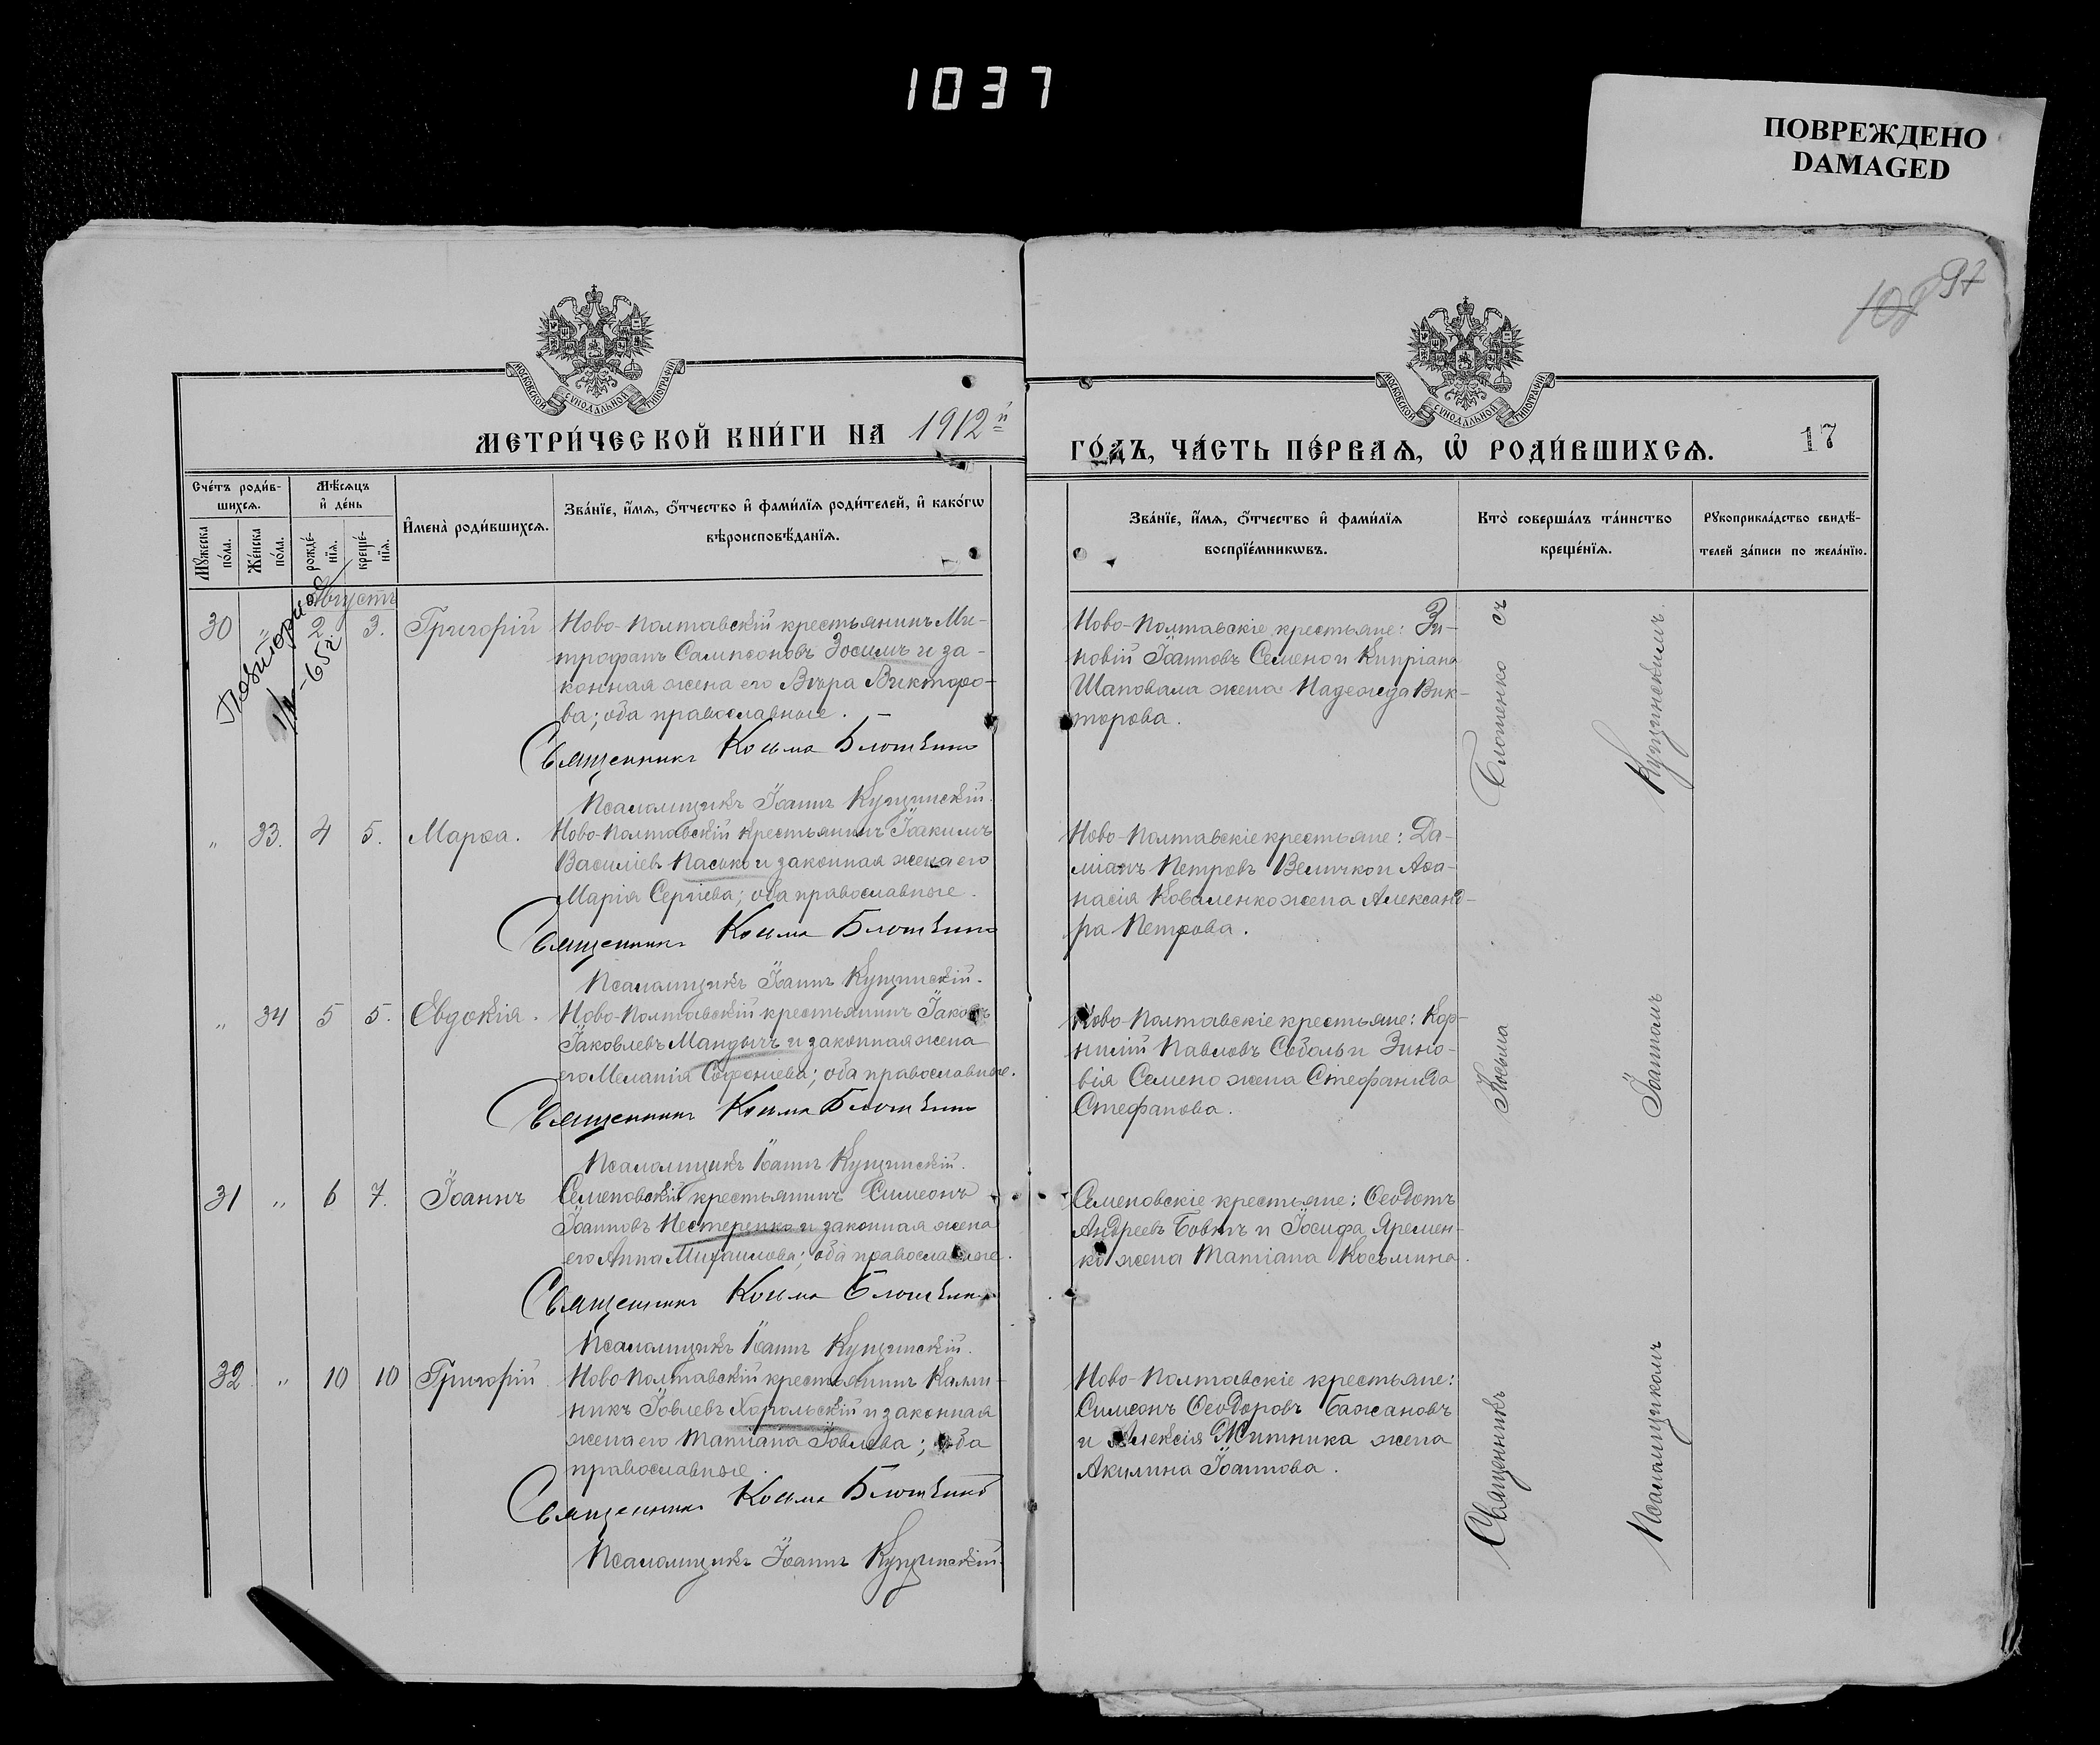 1037
ПОВРЕЖДЕНО
DAMAGED
108 97
МОСКОВСКОЙ СѴНОДАЛЬНОЙ ТИПОГРАФІИ
МОСКОВСКОЙ СѴНОДАЛЬНОЙ ТИПОГРАФІИ
МЕТРИ́ЧЕСКОЙ КНИ́ГИ НА 1912й
ГО́ДЪ, ЧА́СТЬ ПЕ́РВАѦ, Ѡ҆ РОДИ́ВШИХСѦ.
17
Сче́тъ роди́в-
шихсѧ.
Мꙋ́жеска
по́ла.
Же́нска
по́ла.
Мѣ́сѧцъ
и҆ де́нь
рожде́-
нїѧ.
креще́-
нїѧ.
И҆мена̀ роди́вшихсѧ.
Зва́нїе, и҆́мѧ, ѻ҆́тчество и҆ фами́лїѧ роди́телей, и҆ како́гѡ
вѣроисповѣ́данїѧ.
Зва́нїе, и҆́мѧ, ѻ҆́тчество и҆ фами́лїѧ
воспрїе́мникѡвъ.
Кто̀ соверша́лъ та́инство
креще́нїѧ.
Рꙋкоприкла́дство свидѣ́-
телей за́писи по жела́нїю.
Августъ
30 " 2 3. Григорій
Ново-Полтавскій крестьянинъ Ми-
трофанъ Сампсоновъ Зосимъ и за-
конная жена его Вѣра Викторо-
ва; оба православные.
Священникъ Косьма
Псаломщикъ Іоаннъ Кущинскій.
Ново-Полтавскіе крестьяне: Зи-
новій Іоанновъ Семено и Кипріана
Шаповала жена Надежда Вик-
торова.
" 33. 4 5. Марѳа.
Ново-Полтавскій крестьянинъ Іоакимъ
Василіевъ Пасько и законная жена его
Марія Сергіева; оба православные.
Священникъ Косьма
Псаломщикъ Іоаннъ Кущинскій.
Ново-Полтавскіе крестьяне: Да-
міанъ Петровъ Величко и Аѳа-
насія Коваленко жена Александ-
ра Петрова.
" 34 5 5. Евдокія.
Ново-Полтавскій крестьянинъ Іаковъ
Іаковлевъ Мандычъ и законная жена
его Меланія Софоніева; оба православные.
Священникъ Косьма
Псаломщикъ Іоаннъ Кущинскій.
Ново-Полтавскіе крестьяне: Кор-
нилій Павловъ Соболь и Зино-
вія Семено жена Стефанида
Стефанова.
31 " 6 7. Іоаннъ
Семеновскій крестьянинъ Симеонъ
Іоанновъ Нестеренко и законная жена
его Анна Михаилова; оба православные.
Священникъ Косьма
Псаломщикъ Іоаннъ Кущинскій.
Семеновскіе крестьяне: Ѳеодотъ
Андреевъ Бовтъ и Іосифа Яремен-
ко жена Татіана Косьмина.
32 " 10 10 Григорій
Ново-Полтавскій крестьянинъ Калли-
никъ Іовлевъ Хорольскій и законная
жена его Татіана Іовлева; оба
православные.
Священникъ Косьма
Псаломщикъ Іоаннъ Кущинскій.
Ново-Полтавскіе крестьяне:
Симеонъ Ѳеодоровъ Бажановъ
и Алексія Житника жена
Акилина Іоаннова.
Священникъ Косьма съ
Псаломщикомъ Іоанномъ Кущинскимъ.